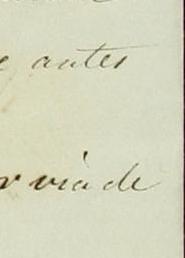 e antes
r via de